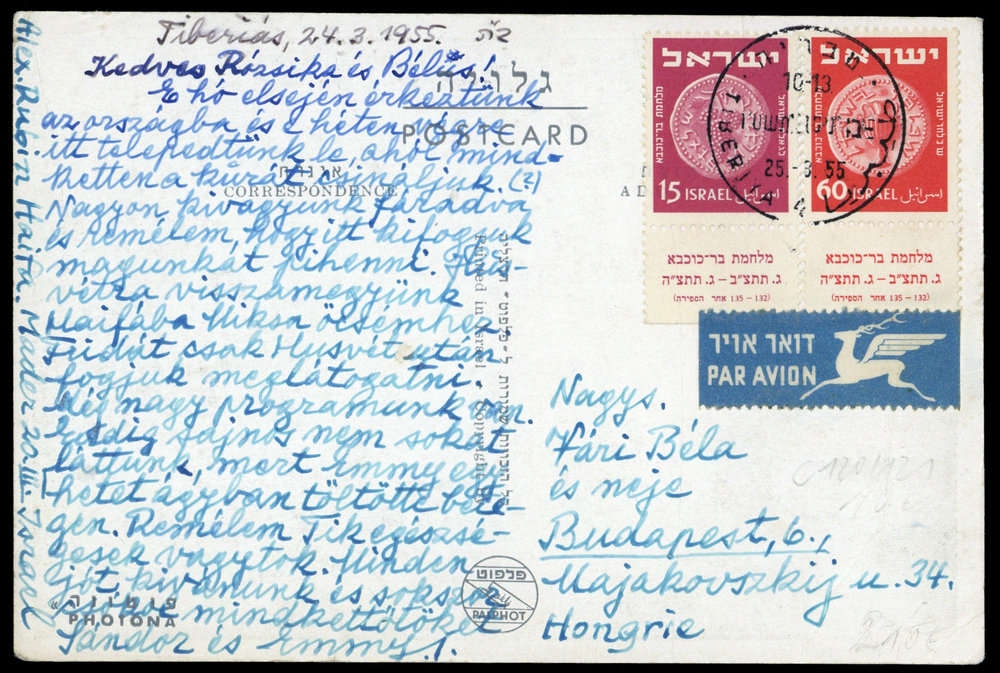 Tiberiás, 24.3.1955.
Kedves Rózsika és Bélus!
E hó elsején érkeztünk
az országba és e héten végre
itt telepedtünk le, ahol mind-
ketten a kúrát csináljuk. (?)
Nagyon kivagyunk fáradva
és remélem, hogy itt kifogjuk
magunkat pihenni. Hus-
vétra visszamegyünk
Haifába Miksa öcsémhez,
Fridát csak Husvét után
fogjuk meglátogatni.
Még nagy programunk van.
Eddig sajnos nem sokat
láttunk, mert Emmy egy
hetet ágyban töltött bete-
gen. Remélem Tik egészsé-
gesek vagytok. Minden
jót kivánunk és sokszor
csókol mindkettőtöket
Sándor és Emmy.
Alex. Rubin Haifa. 22.III. Israel
גלויה
POSTCARD
CORRESPONDENCE
AD
Printed in Israel Copyright by
פלפוט
PALPHOT
PHOTONA
ישראל
מלחמת בר-כוכבא
15 ISRAEL اسرائيل
מלחמת בר-כוכבא
ג. תתצ"ב – ג. תתצ"ה
(132 – 135 אחר הספירה)
ישראל
60 ISRAEL اسرائيل
מלחמת בר-כוכבא
ג. תתצ"ב – ג. תתצ"ה
(132 – 135 אחר הספירה)
10-13
25.-3.55
TIBERIA 4
דואר אויר
PAR AVION
Nagys.
Vári Béla
és neje
Budapest, 6.,
Majakovszkij u. 34.
Hongrie